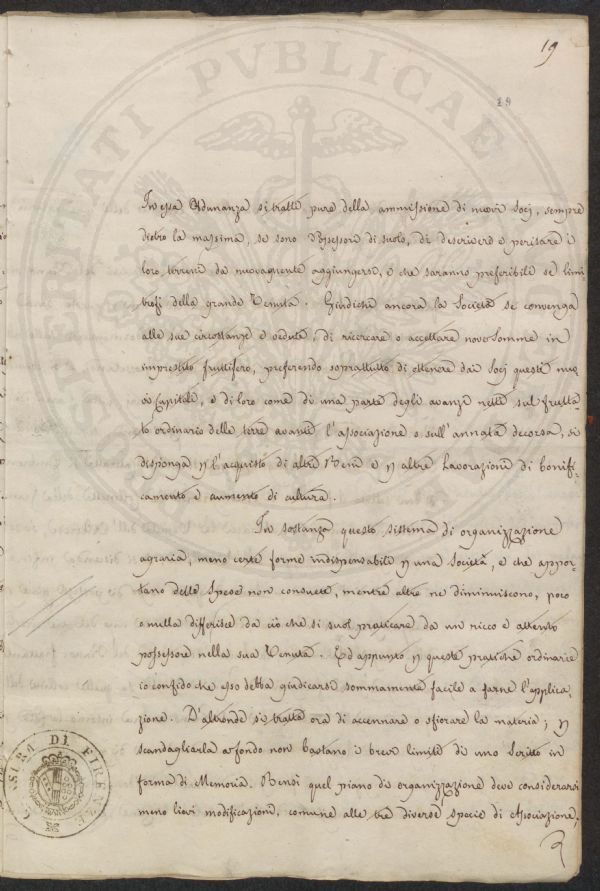 19
29
In essa Adunanza si tratti pure della ammissione di nuovi Socj, sempre
dietro la massima, se sono Possessori di suolo, di descrivere e peritare i
loro terreni da nuovamente aggiungersi, e che saranno preferibili se limi
trofi della grande Tenuta. Giudichi ancora la Società se convenga
alle sue circostanze e vedute, di ricercare o accettare nuove Somme in
imprestito fruttifero, preferendo soprattutto di ottenere dai Socj questi nuo
vi Capitali, e di loro come di una parte degli avanzi netti sul frutta-
to ordinario delle terre avanti l'associazione o sull'annata decorsa, si
disponga p l'acquisto di altri Beni e p altre Lavorazioni di bonifi-
camento e aumento di cultura.
In sostanza questo sistema di organizzazione
agraria, meno certe forme indispensabili p una Società, e che appor-
tano delle Spese non consuete, mentre altre ne diminuiscono, poco
o nulla differisce da ciò che si suol praticare da un ricco e attento
possessore nella sua Tenuta. Ed appunto p queste pratiche ordinarie
io confido che esso debba giudicarsi sommamente facile a farne l'applica,
zione. D'altronde si tratta ora di accennare o sfiorare la materia; p
scandagliarla a fondo non bastano i brevi limiti di uno Scritto in
forma di Memoria. Bensì quel piano di organizzazione deve considerarsi
meno lievi modificazioni, comune alle tre diverse specie di Associazione,